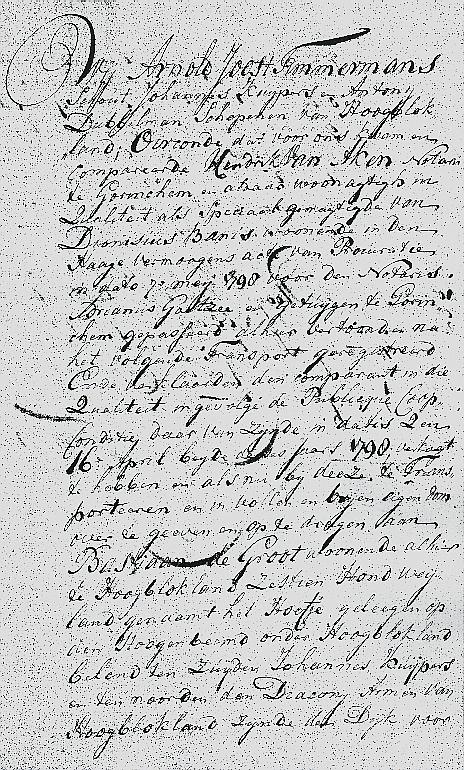 Wy Arnold Joost Timmermans
Schout, Johannes Kuypers en Antony
Dibbelman Schepenen van Hoogblok
land, Oirconde, dat voor ons kwam en
compareerde Hendrik van Aken Notaris
te Gorinchem en aldaar woonagtigh in
Qualiteit als Speciaal gemagtigde van
Dionisius Bams, woonende in den
Haage vermoogens acte van Procuratie
in dato 7 mey 1798 voor den Notaris
Adrianus Goltzee en getuygen te Gorin
chem gepasseerd alhier vertoond en na
het volgende Transport geregistreerd
Ende verklaarden den comparant in die
Qualiteit ingevolge de Publicque Coop
Conditie daar van zynde in datis 2 en
16 April beyde dezes jaars 1798, verkogt
te hebben en als nu by deeze te Trans
porteeren en in vollen en vryen eigendom
over te geeven en op te dragen aan
Bastiaan de Groot woonende alhier
te Hoogblokland Zestien Hond wey
land genaamt het Hoefje geleegen op
den Hoogenbeemd onder Hoogblokland
belend ten Zuyden Johannes Kuypers
en ten noorden den Deacony Armen van
Hoogblokland zynde den Dyk voor